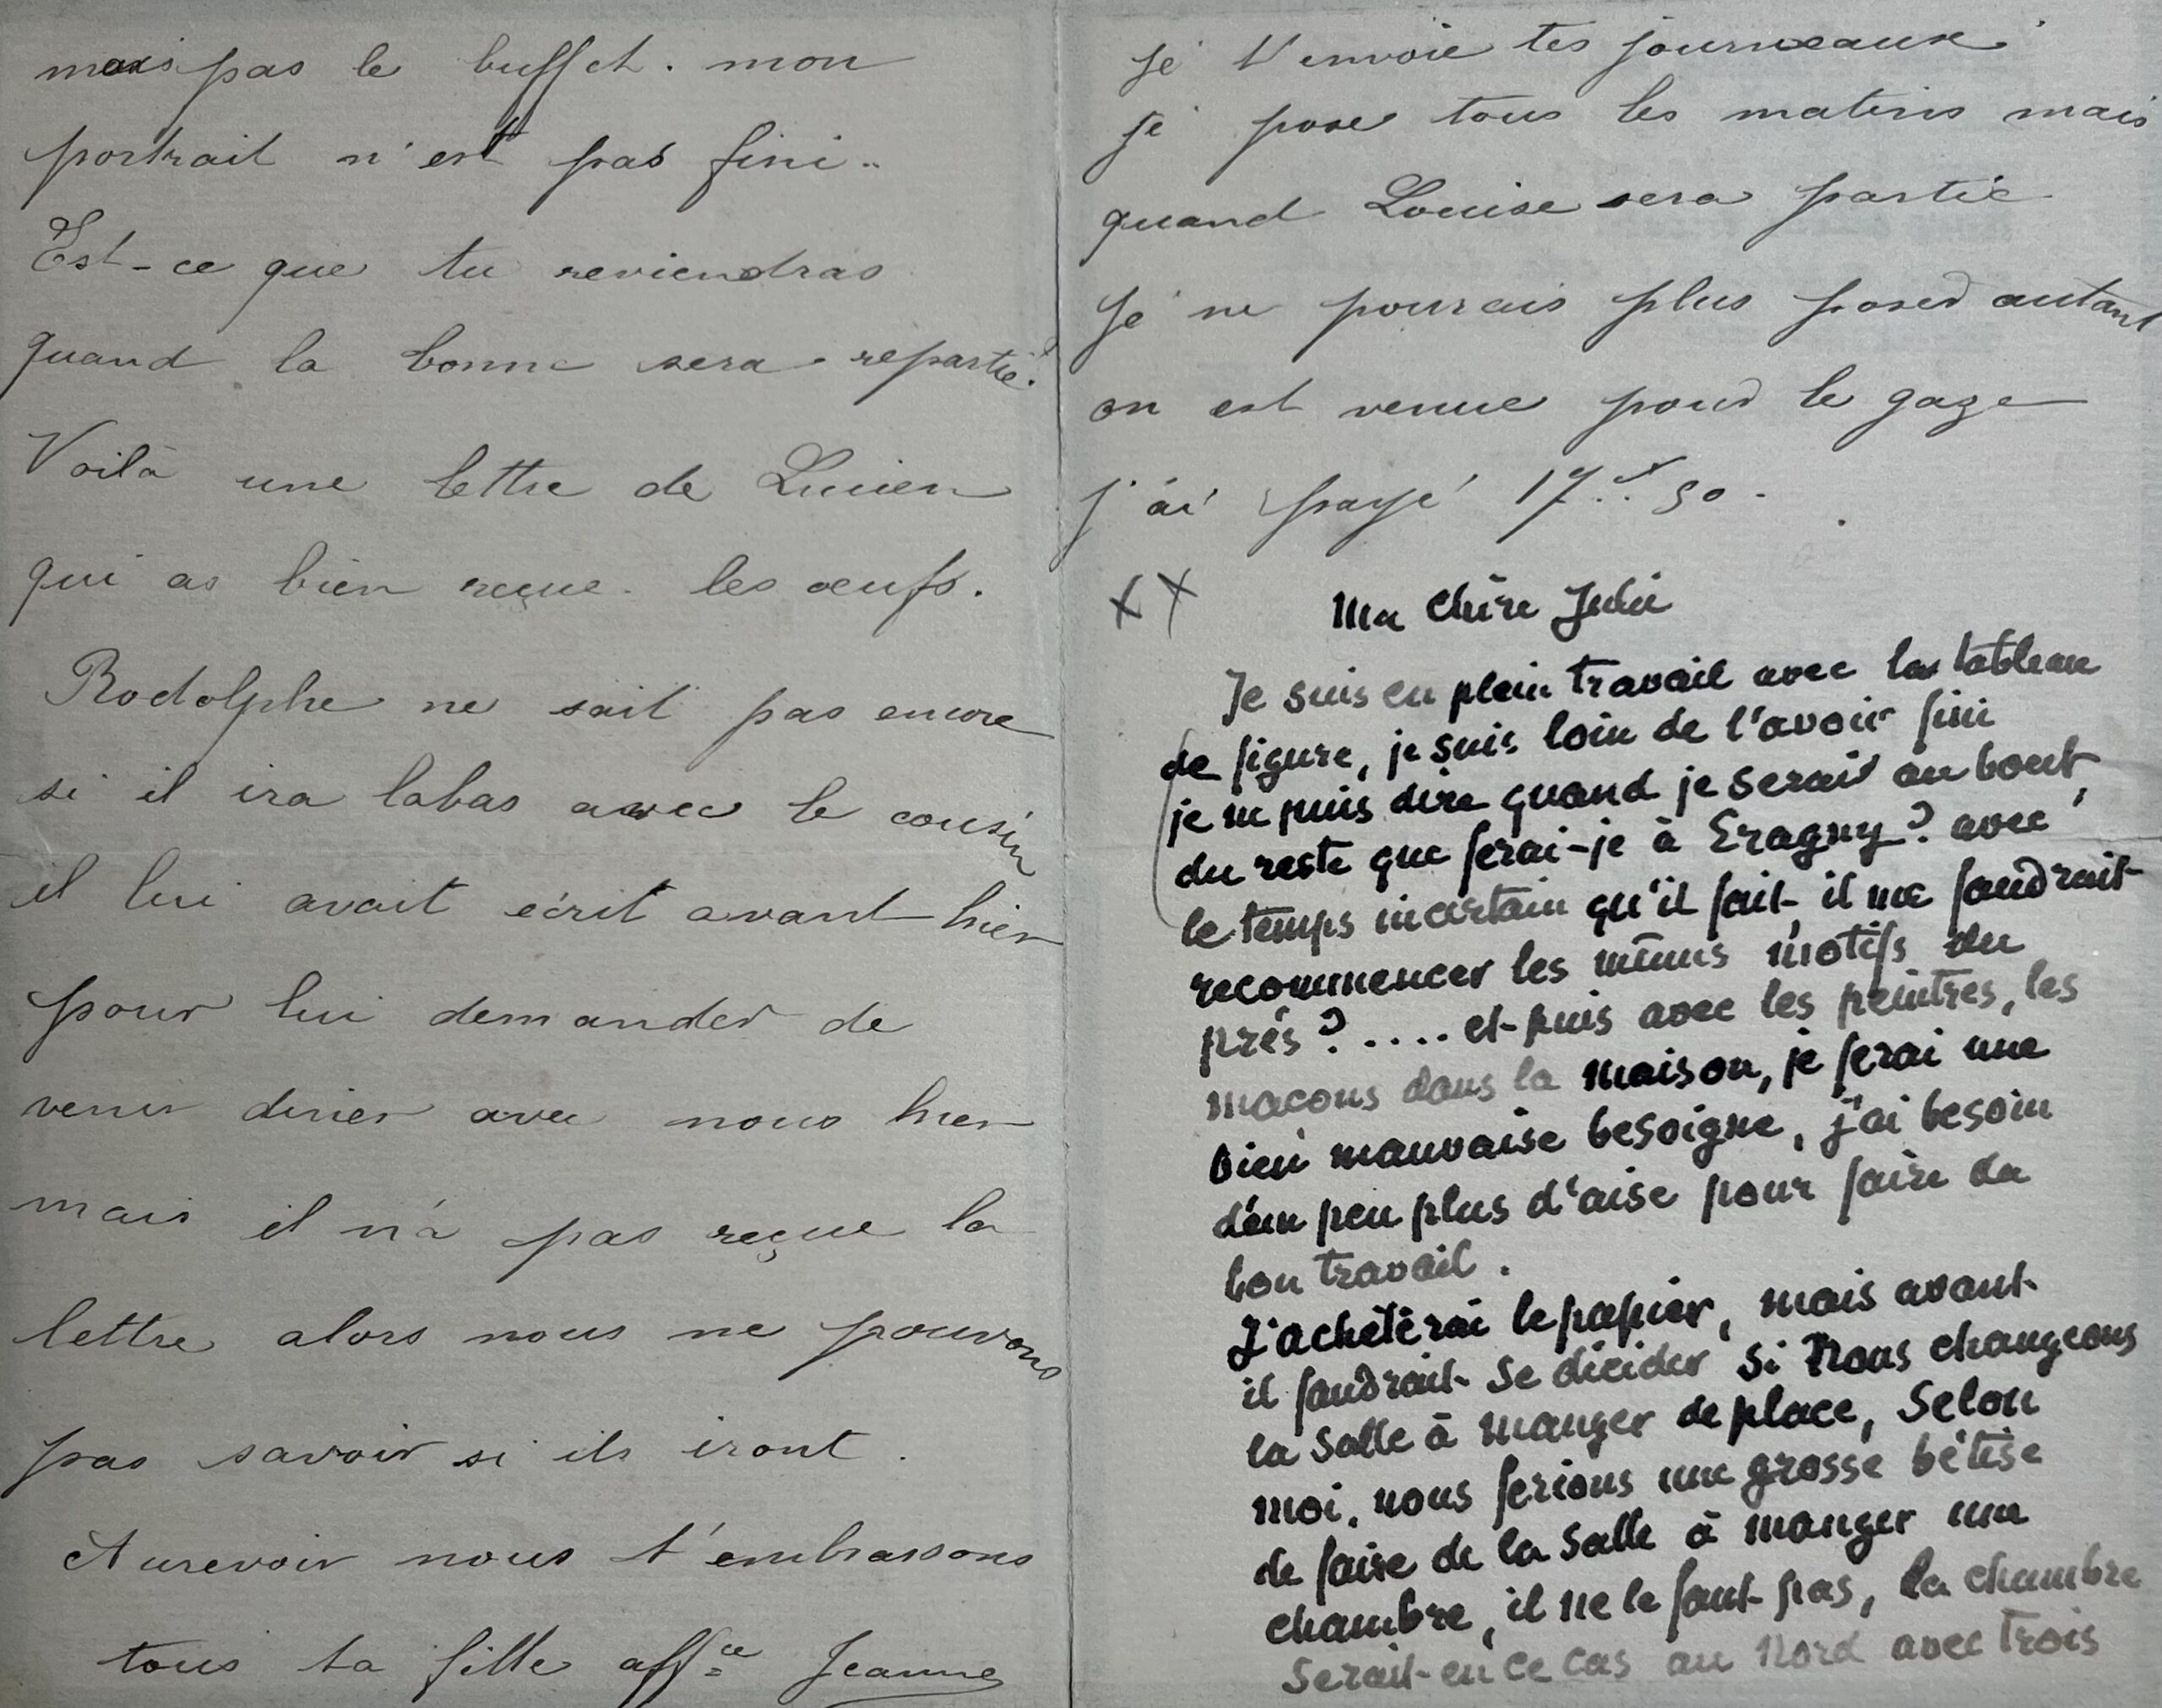 mais pas le buffet. mon
portrait n'est pas fini..
Est-ce que tu reviendras
quand la bonne sera repartie?
Voilà une lettre de Lucien
qui as bien reçue les œufs.
Rodolphe ne sait pas encore
si il ira labas avec le cousin
il lui avait écrit avant hier
pour lui demander de
venir diner avec nous hier
mais il n'a pas reçue la
lettre alors nous ne pouvons
pas savoir si ils iront.
Aurevoir nous t'embrassons
tous ta fille affce Jeanne
je t'envoie tes journeaux
je pose tous les matins mais
quand Louise sera partie
je ne pourrais plus poser autant
on est venue pour le gaze
j'ai payé 17f.50.
XX Ma chère Julie
Je suis en plein travail avec le tableau
de figure, je suis loin de l'avoir fini
je ne puis dire quand je serais au bout,
du reste que ferai-je à Eragny? avec
le temps incertain qu'il fait, il me faudrait
recommencer les mêmes motifs du
près?.... et puis avec les peintres, les
maçons dans la maison, je ferai une
bien mauvaise besoigne, j'ai besoin
d'un peu plus d'aise pour faire du
bon travail.
J'achèterai le papier, mais avant
il faudrait se décider si nous changeons
la salle à manger de place, selon
moi, nous ferions une grosse bêtise
de faire de la salle à manger une
chambre, il ne le faut pas, la chambre
serait en ce cas au Nord avec trois